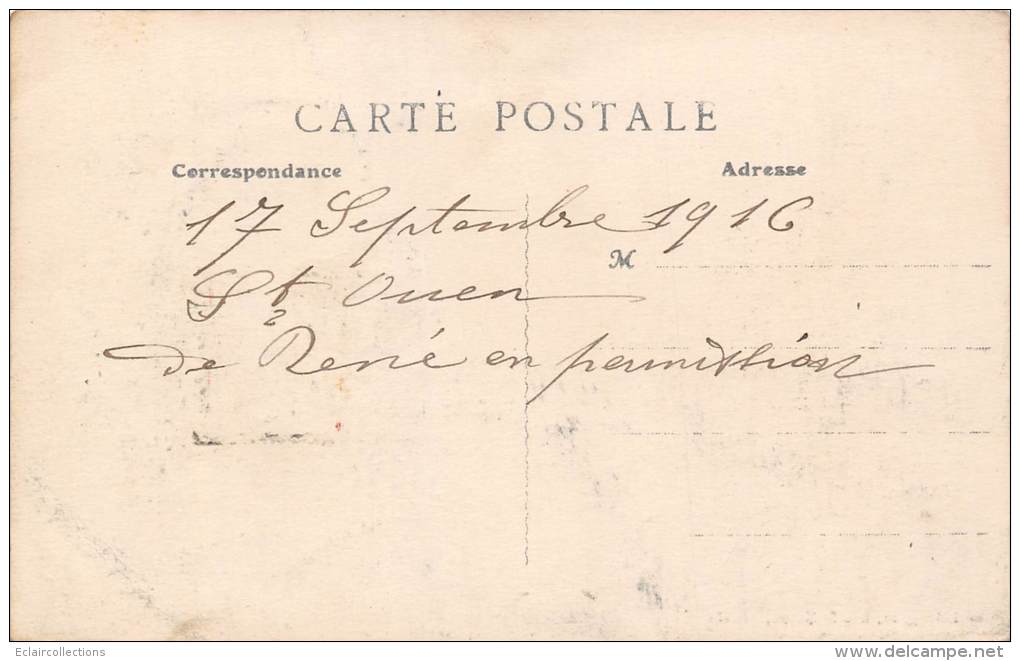 CARTE POSTALE
Correspondance Adresse
17 Septembre 1916
M
St Ouen
de René en permission
Eclaircollections
www.delcampe.net